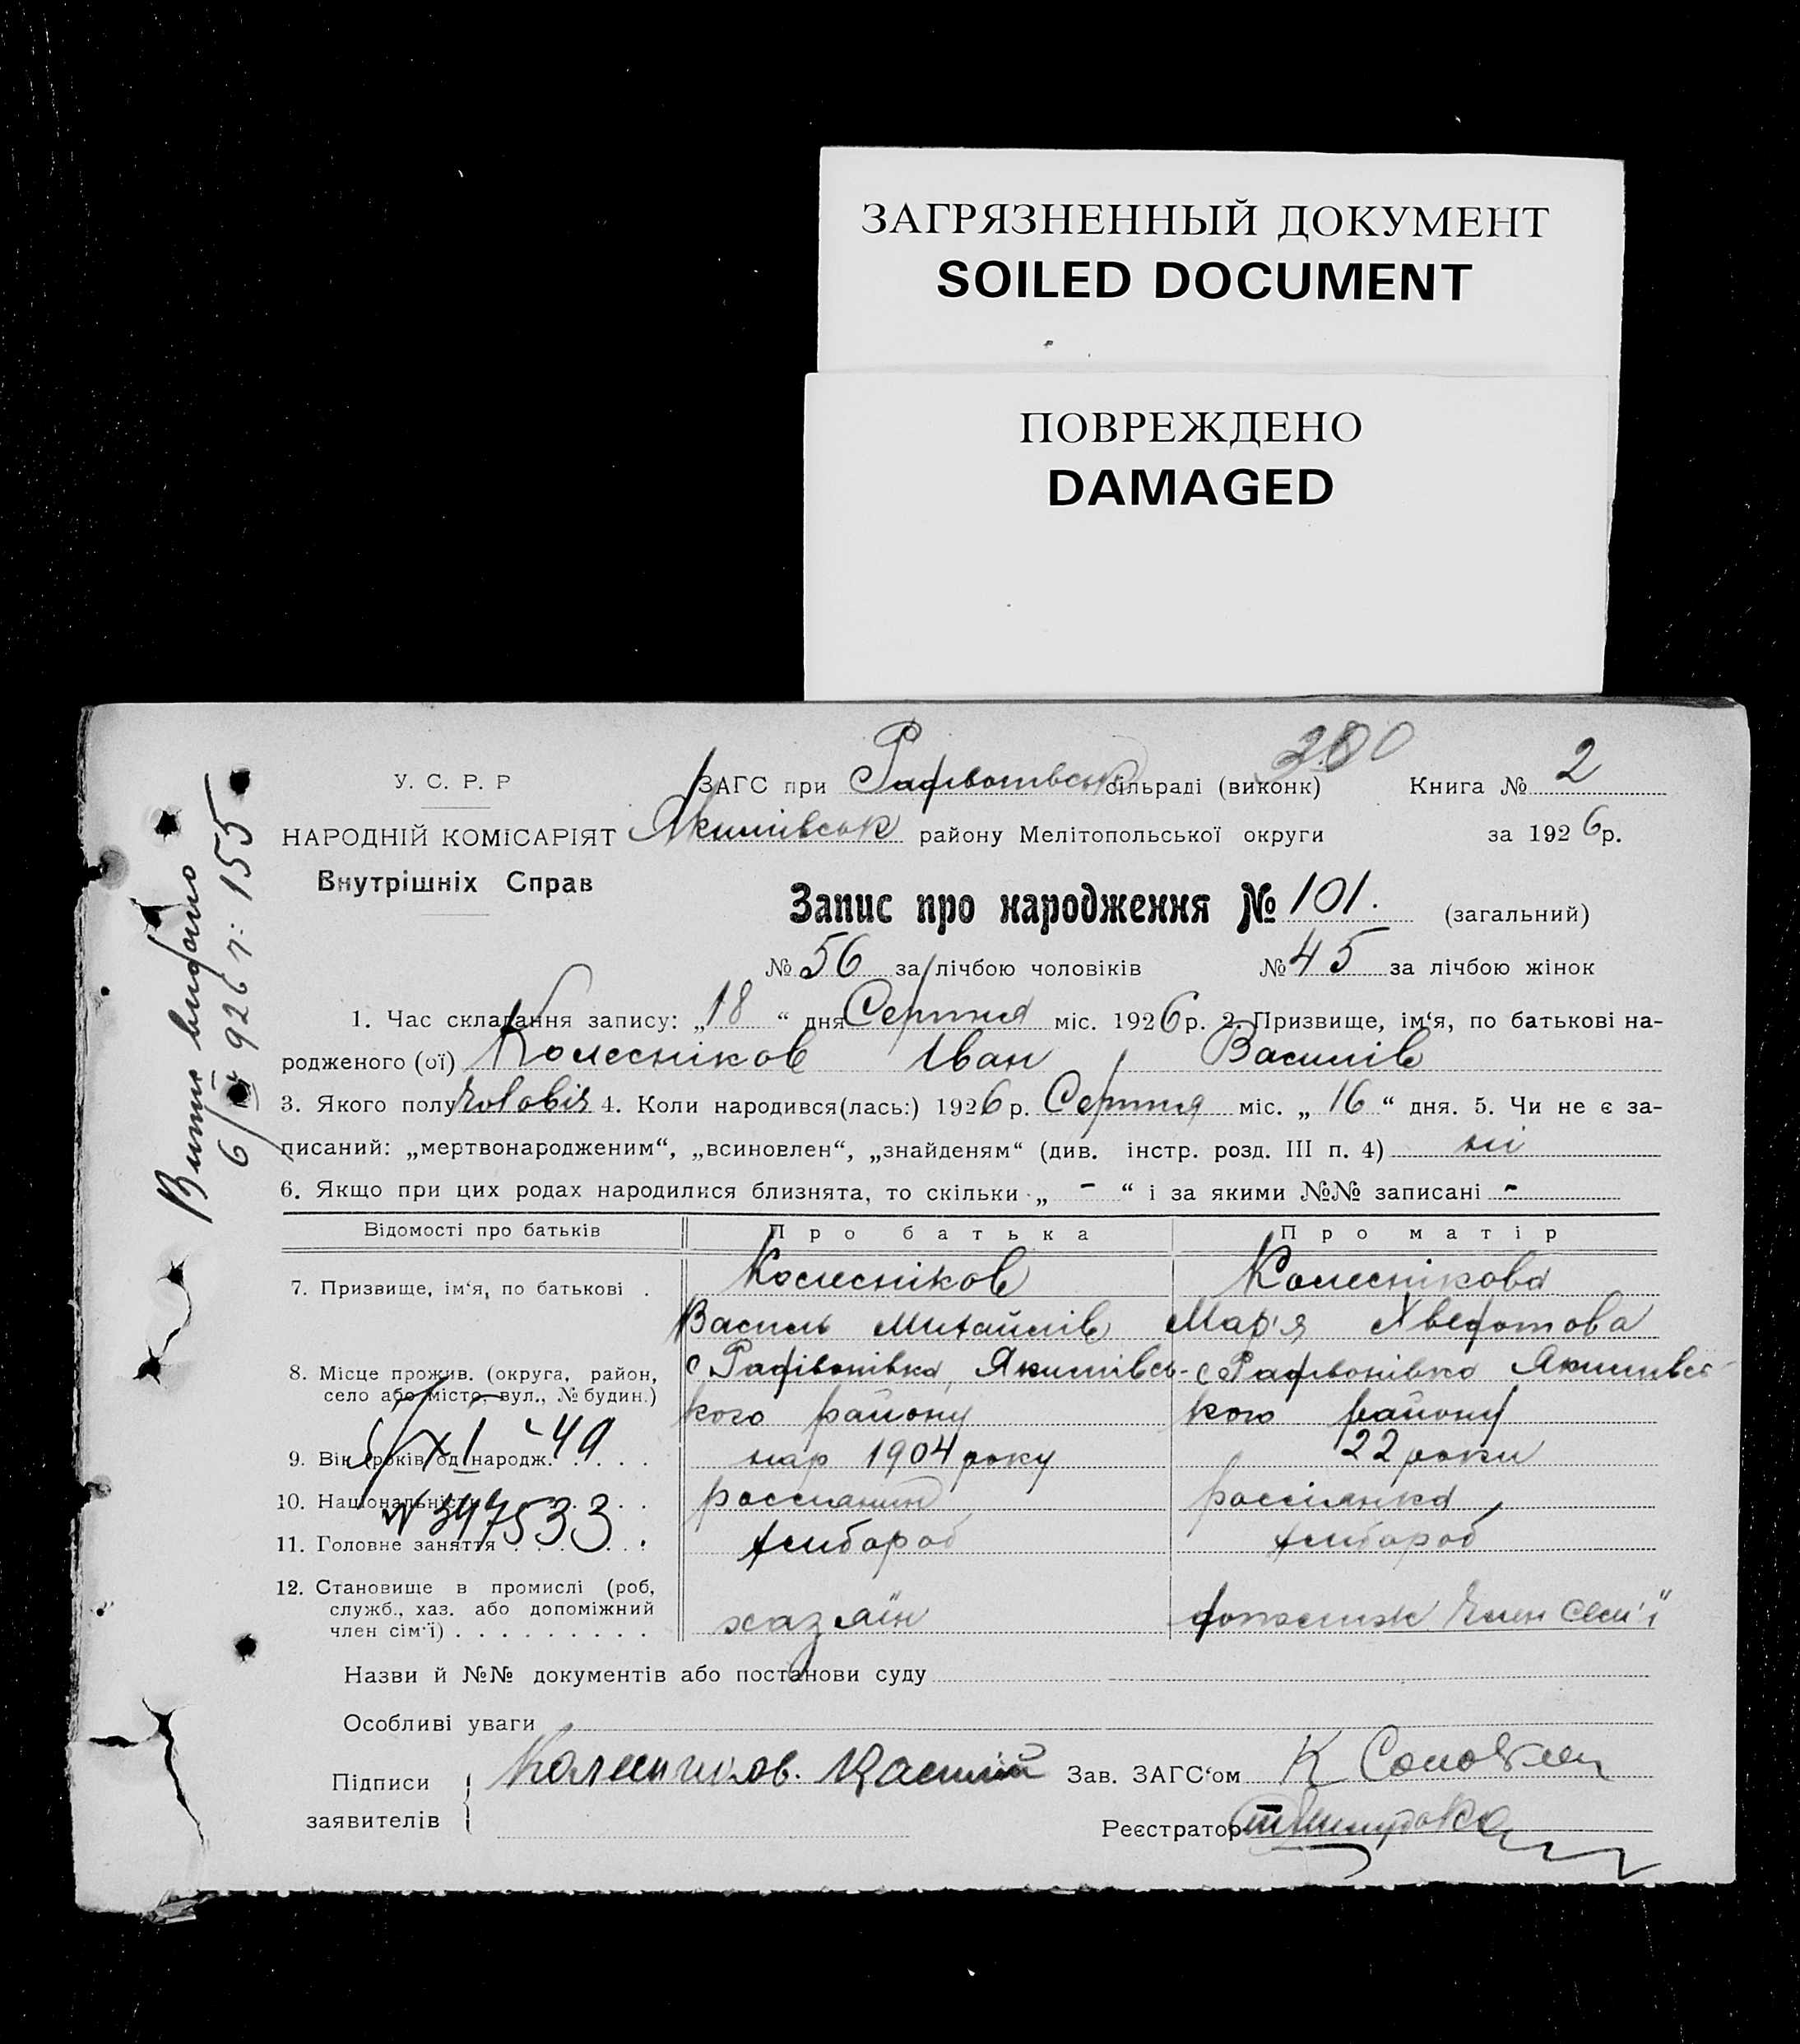 ЗАГРЯЗНЕННЫЙ ДОКУМЕНТ
SOILED DOCUMENT
ПОВРЕЖДЕНО
DAMAGED
280
У. С. Р. Р
ЗАГС при сільраді (виконк) Книга № 2
НАРОДНІЙ КОМІСАРІЯТ Якимівськ району Мелітопольської округи за 1926р.
Внутрішніх Справ
Запис про народження № 101. (загальний)
№ 56 за лічбою чоловіків № 45 за лічбою жінок
1. Час складання запису: „18“ дня Серпня міс. 1926р. 2. Призвище, ім‘я, по батькові на-
родженого (ої) Колесніков Іван Василів
3. Якого полу чоловіч 4. Коли народився(лась:) 1926р. Серпня міс. „16“ дня. 5. Чи не є за-
писаний: „мертвонародженим“, „всиновлен“, „знайденям“ (див. інстр. розд. III п. 4) ні
6. Якщо при цих родах народилися близнята, то скільки „ - “ і за якими №№ записані -
Відомості про батьків Про батька Про матір
7. Призвище, ім‘я, по батькові . Колесніков Колеснікова
Василь Михайлів Мар'я Хведотова
8. Місце прожив. (округа, район, с Радівонівка, Якимівсь- с Радівонівка Якимівсь-
село або місто, вул., № будин.) кого району кого району
9. Вік (років од народж. нар 1904 року 22 роки
5/XI 49
10. Національність россиянин россіянка
№ 347533
11. Головне заняття хлібороб хлібороб
12. Становище в промислі (роб,
служб., хаз. або допоміжний
член сім‘ї) хазяїн допоміж член сем'ї
Назви й №№ документів або постанови суду
Особливі уваги
Підписи Зав. ЗАГС‘ом К
заявителів Реєстратор
Витяг видано
6/ 926 р: 155